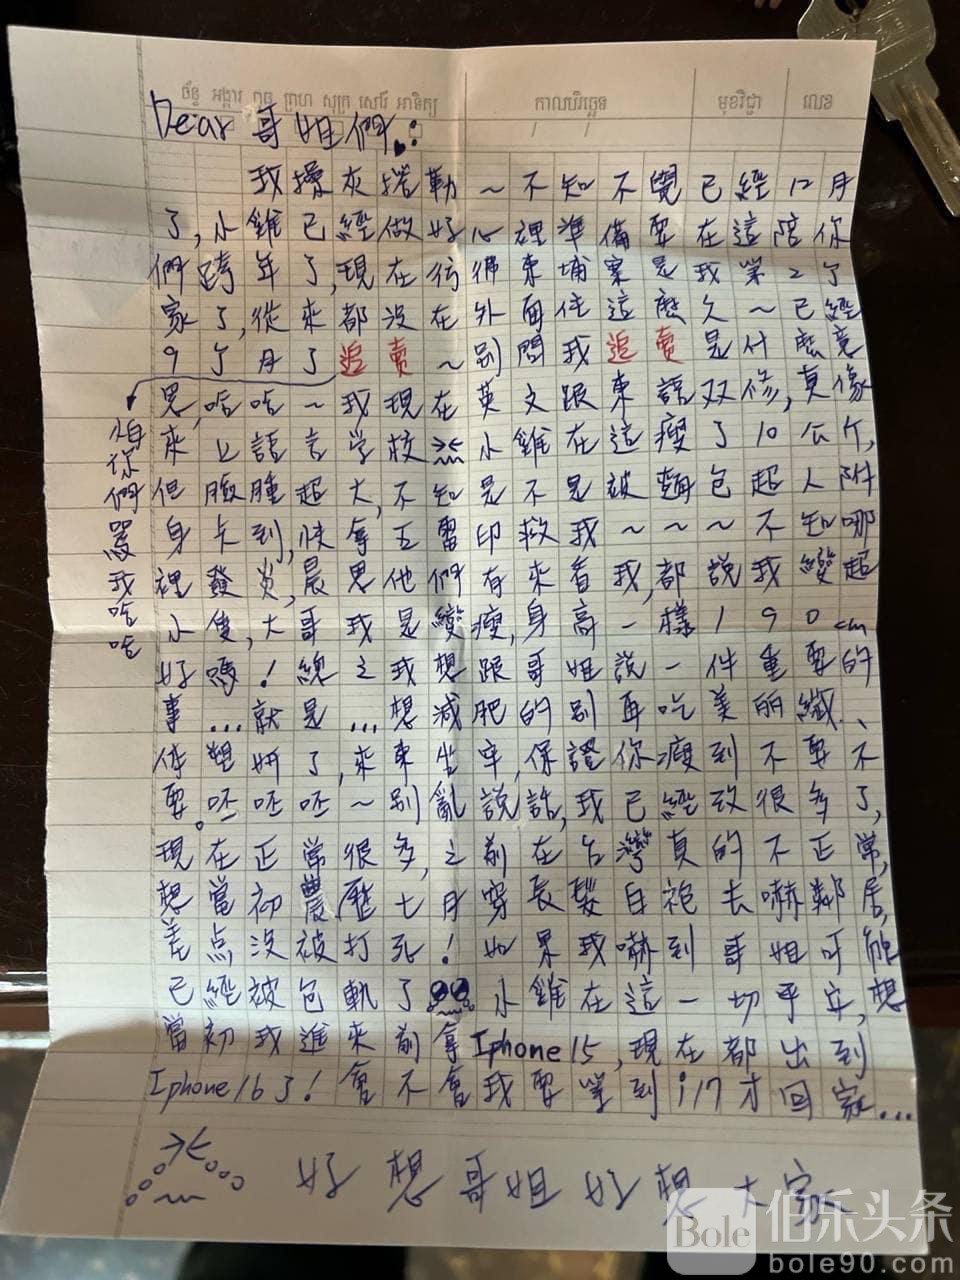 ច័ន្ទ អង្គារ ពុធ ព្រហ សុក្រ សៅរ៍ អាទិត្យ កាលបរិច្ឆេទ មុខវិជ្ជា លេខ
Dear 哥姐們
我操灰捲勒～不知不覺已經12月
了,小雞已經做好心裡準備要在這陪你
們跨年了,現在彷彿柬埔寨是我第2个
家了,從來都沒在外面住這麼久～已經
9个月了追卖～别問我追卖是什麼意
思,哈哈～我現在英文跟柬語双修,真像
來上語言学校 小雞在這瘦了10公斤,
但臉腫超大,不知是不是被麵包超人附
身卡到,快拿五雷印救我～～～不知哪
裡發炎,晨思他們有來看我,都說我變超
小隻,大哥我是變瘦,身高一樣190cm
好嗎!總之我想跟哥姐說一件重要的
事...就是...想減肥的别再吃美丽纖、
倍塑妍了,來柬坐牢,保證你瘦到不要不
要。呸呸呸～别亂說話,我已經改很多了,
現在正常很多,之前在台灣真的不正常,
想當初農歷七月穿長髮白袍去嚇鄰居,
差点没被打死!如果我嚇到哥姐可能
已經被包軌了 小雞在這一切平安,想
當初我進來前拿Iphone15,現在都出到
Iphone16了!會不會我要等到i17才回家...
好想哥姐 好想大家
怕你們罵我哈哈
Bole 伯乐头条
bole90.com